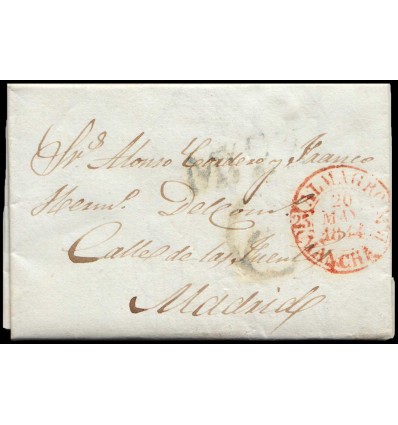 Sr.s Alonso Cordero y Franco
Herm.s Del Com.
Calle de la
Madrid
ALMAGRO
20
MAY
1844
MANCHA